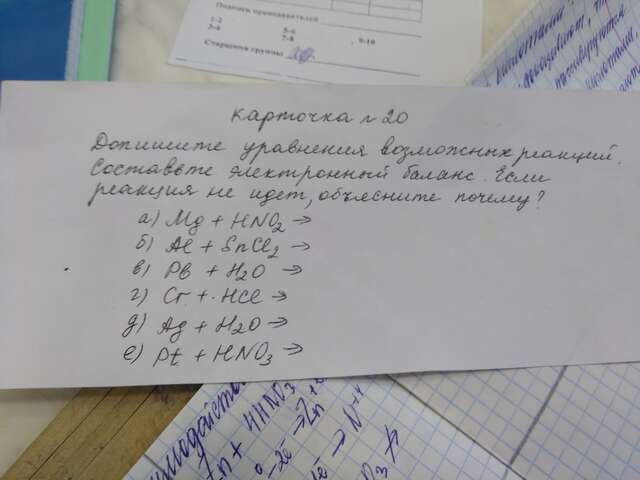 Подпись преподавателей
1-2
3-4
5-6
7-8
, 9-10
Староста группы
карточка № 20
Допишите уравнения возможных реакций.
Составьте электронный баланс. Если
реакция не идет, объясните почему?
а) Mg + HNO2 →
б) Al + SnCl2 →
в) Pb + H2O →
г) Cr + HCl →
д) Ag + H2O →
е) Pt + HNO3 →